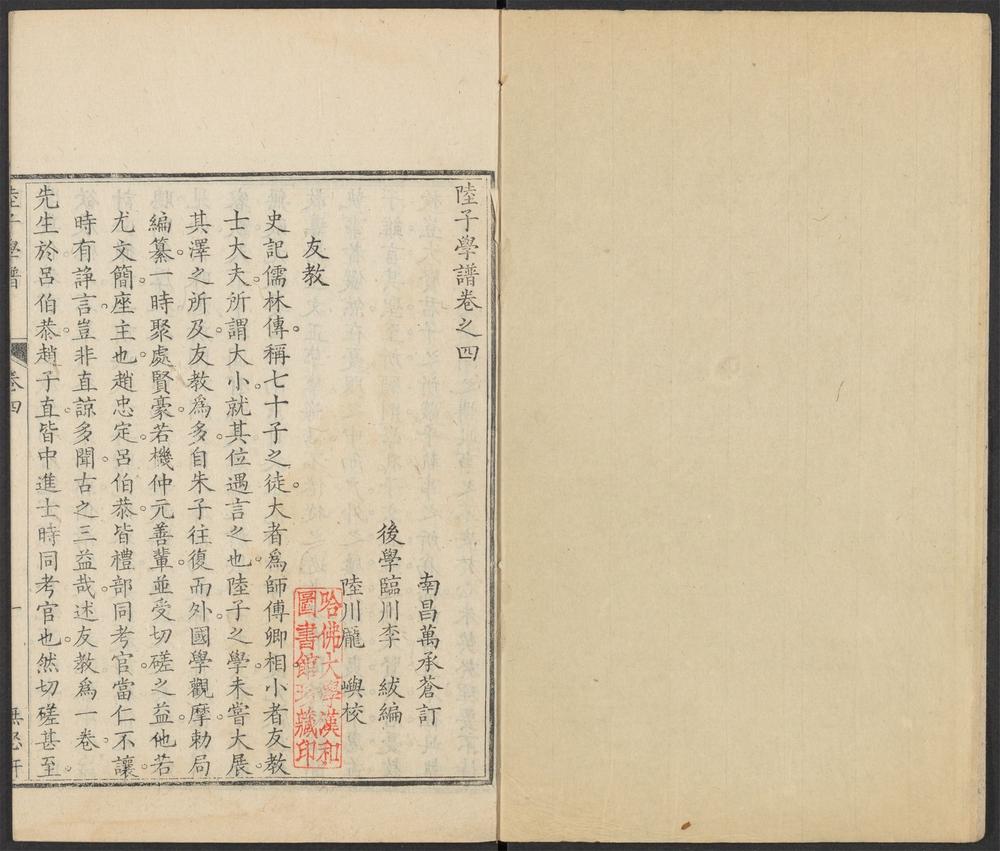 陸子學譜卷之四
南昌萬承蒼訂
後學臨川李紱編
陸川龎嶼校
友教
史記儒林傳稱七十子之徒。大者為師傅卿相。小者友教
士大夫。所謂大小。就其位遇言之也。陸子之學。未嘗大展
其澤之所及。友教為多。自朱子往復而外。國學觀摩。勅局
編纂。一時聚處賢豪。若機仲元善輩。並受切磋之益。他若
尤文簡。座主也。趙忠定。呂伯恭。皆禮部同考官。當仁不讓
時有諍言。豈非直諒多聞。古之三益哉。述友教為一卷。
先生於呂伯恭。趙子直。皆中進士時同考官也。然切磋甚至。
陸子學譜
卷四
一
無怒軒
哈佛大學漢和
圖書館珍藏印